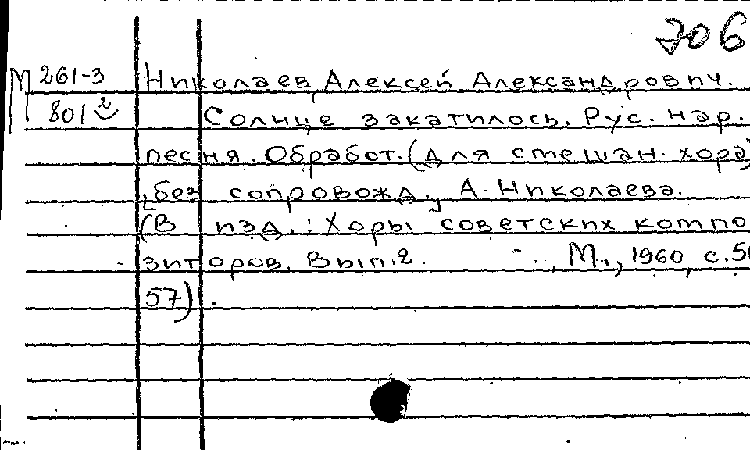 706
М 261-3 Николаев, Алексей Александрович.
801² Солнце закатилось. Рус. нар.
песня. Обработ. (для смешан. хора,
без сопровожд.) А. Николаева.
(В изд.: Хоры советских компо
зиторов. Вып. 2. М., 1960, с. 56
57).